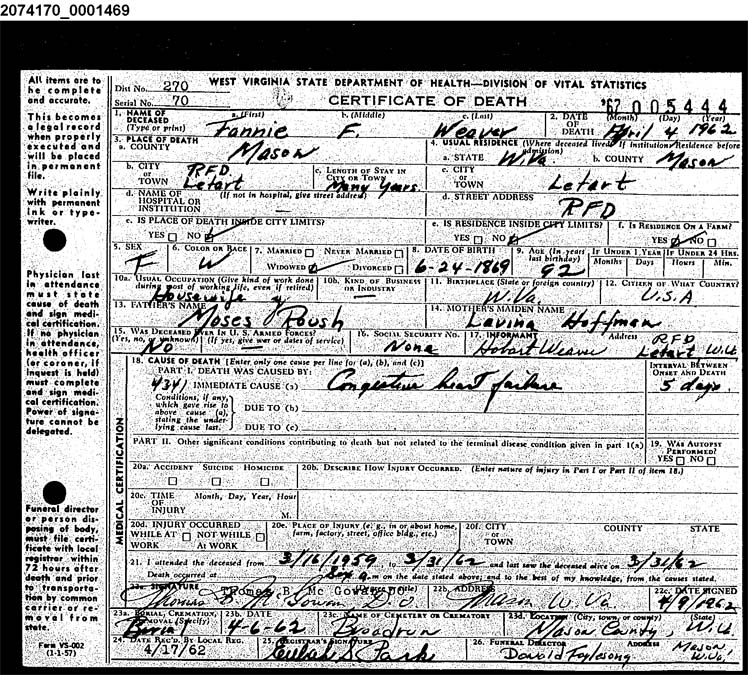 2074170_0001469
All items are to be complete and accurate.
This becomes a legal record when properly executed and will be placed in permanent file.
Write plainly with permanent ink or typewriter.
Physician last in attendance must state cause of death and sign medical certification. If no physician in attendance, health officer (or coroner, if inquest is held) must complete and sign medical certification. Power of signature cannot be delegated.
Funeral director or person disposing of body, must file certificate with local registrar within 72 hours after death and prior to transportation by common carrier or removal from state.
Form VS-002
(1-1-57)
Dist No. 270 WEST VIRGINIA STATE DEPARTMENT OF HEALTH—DIVISION OF VITAL STATISTICS
Serial No. 70 CERTIFICATE OF DEATH '62 005444
1. NAME OF DECEASED (Type or print) a. (First) Fannie b. (Middle) F. c. (Last) Weaver 2. DATE OF DEATH (Month) (Day) (Year) April 4 1962
3. PLACE OF DEATH a. COUNTY Mason 4. USUAL RESIDENCE (Where deceased lived. If institution: Residence before admission) a. STATE W.Va. b. COUNTY Mason
b. CITY OR TOWN RFD Letart c. LENGTH OF STAY IN CITY OR TOWN Many Years. c. CITY OR TOWN Letart
d. NAME OF HOSPITAL OR INSTITUTION (If not in hospital, give street address) — d. STREET ADDRESS RFD
e. IS PLACE OF DEATH INSIDE CITY LIMITS? YES NO e. IS RESIDENCE INSIDE CITY LIMITS? YES NO f. IS RESIDENCE ON A FARM? YES NO
5. SEX F 6. COLOR OR RACE W 7. MARRIED NEVER MARRIED WIDOWED DIVORCED 8. DATE OF BIRTH 6-24-1869 9. AGE (In years last birthday) 92 IF UNDER 1 YEAR Months Days IF UNDER 24 HRS. Hours Min.
10a. USUAL OCCUPATION (Give kind of work done during most of working life, even if retired) Housewife 10b. KIND OF BUSINESS OR INDUSTRY — 11. BIRTHPLACE (State or foreign country) W.Va. 12. CITIZEN OF WHAT COUNTRY? U.S.A
13. FATHER'S NAME Moses Roush 14. MOTHER'S MAIDEN NAME Lavina Hoffman
15. WAS DECEASED EVER IN U. S. ARMED FORCES? (Yes, no, or unknown) (If yes, give war or dates of service) No 16. SOCIAL SECURITY NO. None 17. INFORMANT Hobart Weaver Address RFD Letart W.Va
18. CAUSE OF DEATH [Enter only one cause per line for (a), (b), and (c)] INTERVAL BETWEEN ONSET AND DEATH
PART I. DEATH WAS CAUSED BY:
4341 IMMEDIATE CAUSE (a) Congestive heart failure 5 days
Conditions, if any, which gave rise to above cause (a), stating the underlying cause last. DUE TO (b)
DUE TO (c)
PART II. Other significant conditions contributing to death but not related to the terminal disease condition given in part I(a) 19. WAS AUTOPSY PERFORMED? YES NO
MEDICAL CERTIFICATION
20a. ACCIDENT SUICIDE HOMICIDE 20b. DESCRIBE HOW INJURY OCCURRED. (Enter nature of injury in Part I or Part II of item 18.)
20c. TIME OF INJURY Month, Day, Year, Hour M.
20d. INJURY OCCURRED WHILE AT WORK NOT WHILE AT WORK 20e. PLACE OF INJURY (e. g., in or about home, farm, factory, street, office bldg., etc.) 20f. CITY OR TOWN COUNTY STATE
21. I attended the deceased from 3/16/1959, to 3/31/62 and last saw the deceased alive on 3/31/62
Death occurred at m on the date stated above; and to the best of my knowledge, from the causes stated.
22a. SIGNATURE Thomas B. Mc Gowan DO 22b. ADDRESS Mason W. Va. 22c. DATE SIGNED 4/9/1962
23a. BURIAL, CREMATION, REMOVAL (Specify) 23b. DATE 4-6-62 23c. NAME OF CEMETERY OR CREMATORY Broadrun 23d. LOCATION (City, town, or county) (State) Mason County, W.Va.
24. DATE REC'D. BY LOCAL REG. 4/17/62 25. REGISTRAR'S SIGNATURE Eulah S. Park 26. FUNERAL DIRECTOR Donald Foglesong ADDRESS Mason W.Va.